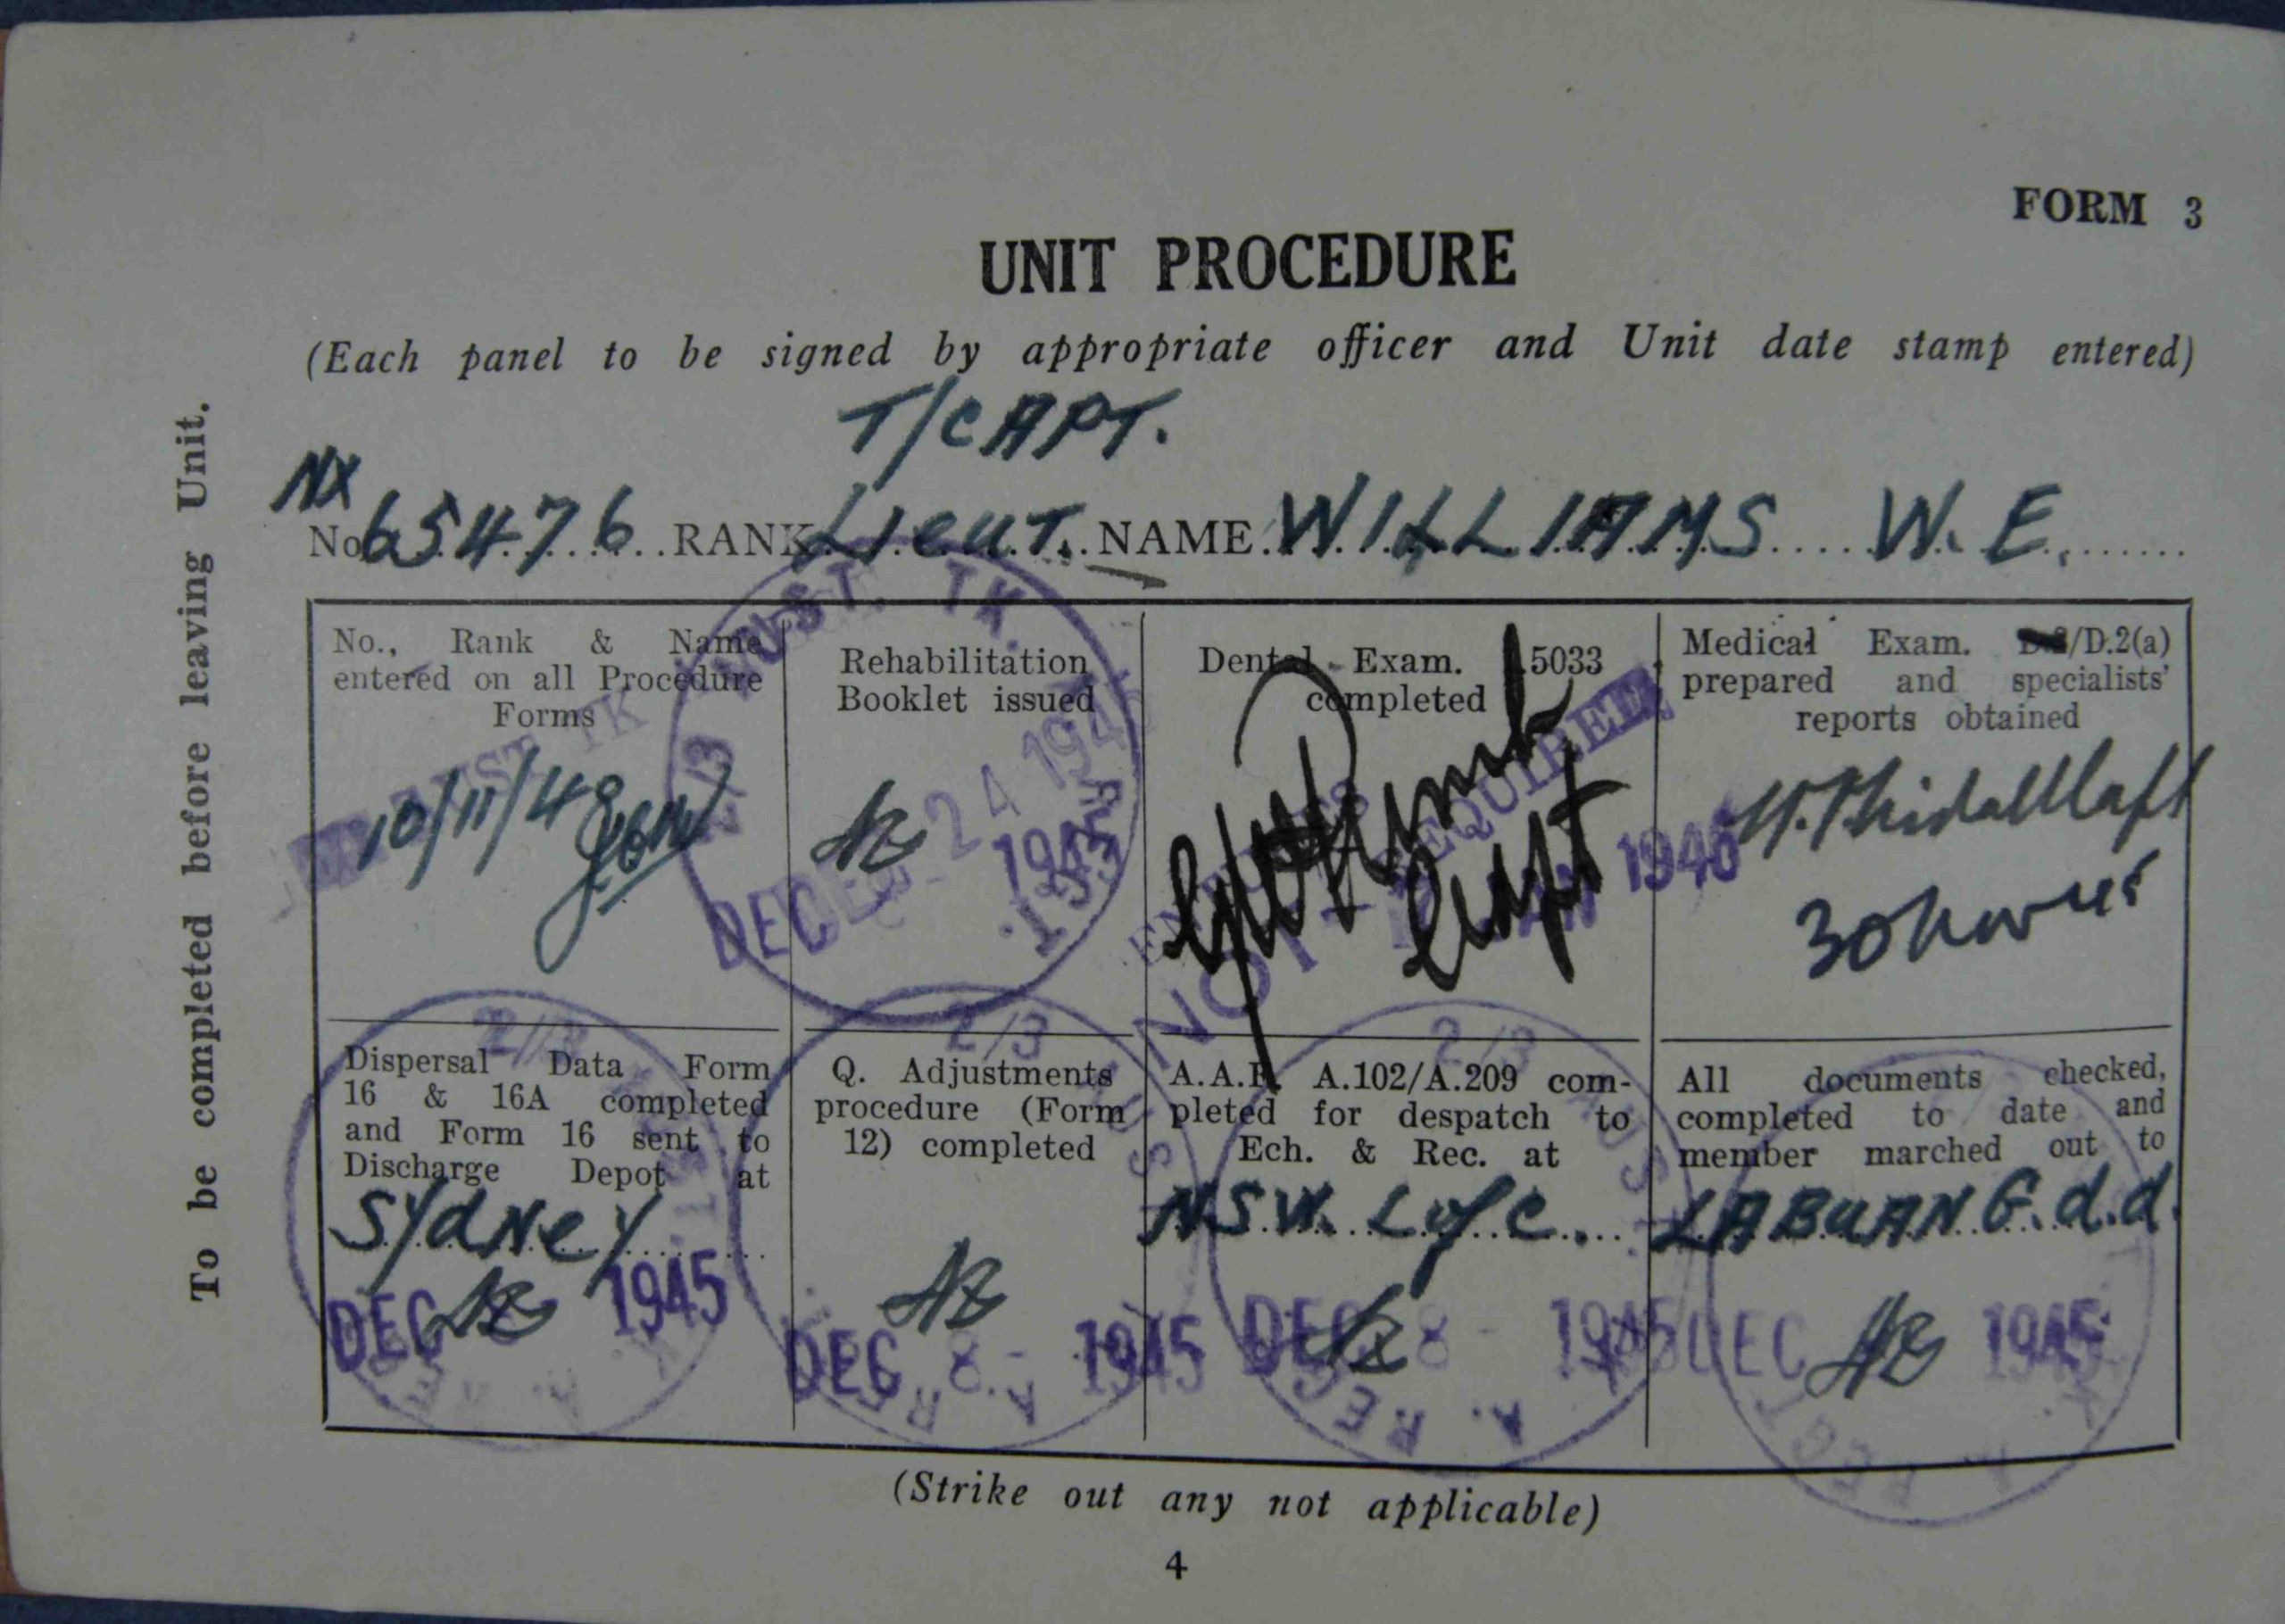 FORM 3
UNIT PROCEDURE
(Each panel to be signed by appropriate officer and Unit date stamp entered)
To be completed before leaving Unit.
T/CAPT.
NX
No 65476 RANK Lieut. NAME WILLIAMS W. E.
No., Rank & Name
entered on all Procedure
Forms
10/11/4
Rehabilitation
Booklet issued
DEC 24 1945
DEC 1945
2/3 AUST. TK. REGT.
Dental Exam. 5033
completed
NOT REQUIRED
1946
Capt
Medical Exam. /D.2(a)
prepared and specialists'
reports obtained
30 Nov 45
Dispersal Data Form
16 & 16A completed
and Form 16 sent to
Discharge Depot at
Sydney
DEC 1945
2/3
Q. Adjustments
procedure (Form
12) completed
DEC 8 - 1945
2/3 AUST
A. REGT
A.A.F. A.102/A.209 com-
pleted for despatch to
Ech. & Rec. at
NSW. L of C.
DEC 8 - 1945
2/3 AUST
A. REGT
All documents checked,
completed to date and
member marched out to
LABUAN G.d.d.
DEC 1945
A. REGT
(Strike out any not applicable)
4